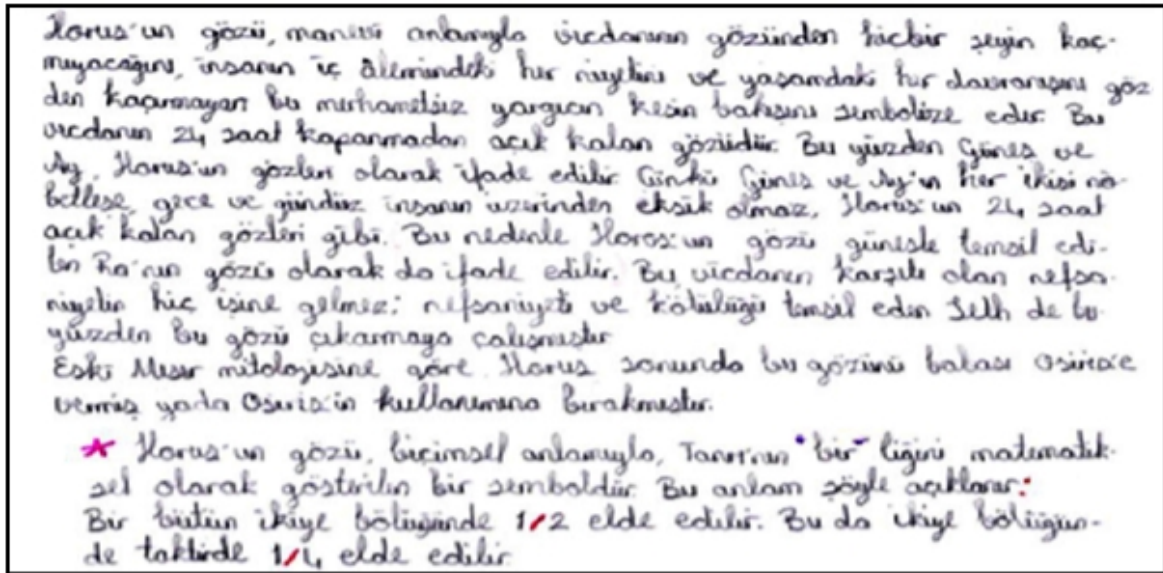 Horus'un gözü, manevi anlamıyla vicdanın gözünden hiçbir şeyin kaç-
mayacağını, insanın iç âlemindeki her niyetini ve yaşamdaki her davranışını göz
den kaçırmayan bu merhametsiz yargıcın keskin bakışını sembolize eder. Bu
vicdanın 24 saat kapanmadan açık kalan gözüdür. Bu yüzden Güneş ve
Ay, Horus'un gözleri olarak ifade edilir. Çünkü Güneş ve Ay'ın her ikisi nö-
betleşe, gece ve gündüz insanın üzerinden eksik olmaz, Horus'un 24 saat
açık kalan gözleri gibi. Bu nedenle Horos'un gözü güneşle temsil edi-
len Ra'nın gözü olarak da ifade edilir. Bu, vicdanın karşıtı olan nefsa-
niyetin hiç işine gelmez; nefsaniyeti ve kötülüğü temsil eden Seth de bu
yüzden bu gözü çıkarmaya çalışmıştır
Eski Mısır mitolojisine göre Horus sonunda bu gözünü babası Osiris'e
vermiş yada Osiris'in kullanımına bırakmıştır.
* Horus'un gözü, biçimsel anlamıyla, Tanrı'nın "bir"liğini matematik-
sel olarak gösterilen bir semboldür. Bu anlam şöyle açıklanır:
Bir bütün ikiye bölüğünde 1/2 elde edilir. Bu da ikiye bölüğün-
de taktirde 1/4 elde edilir.